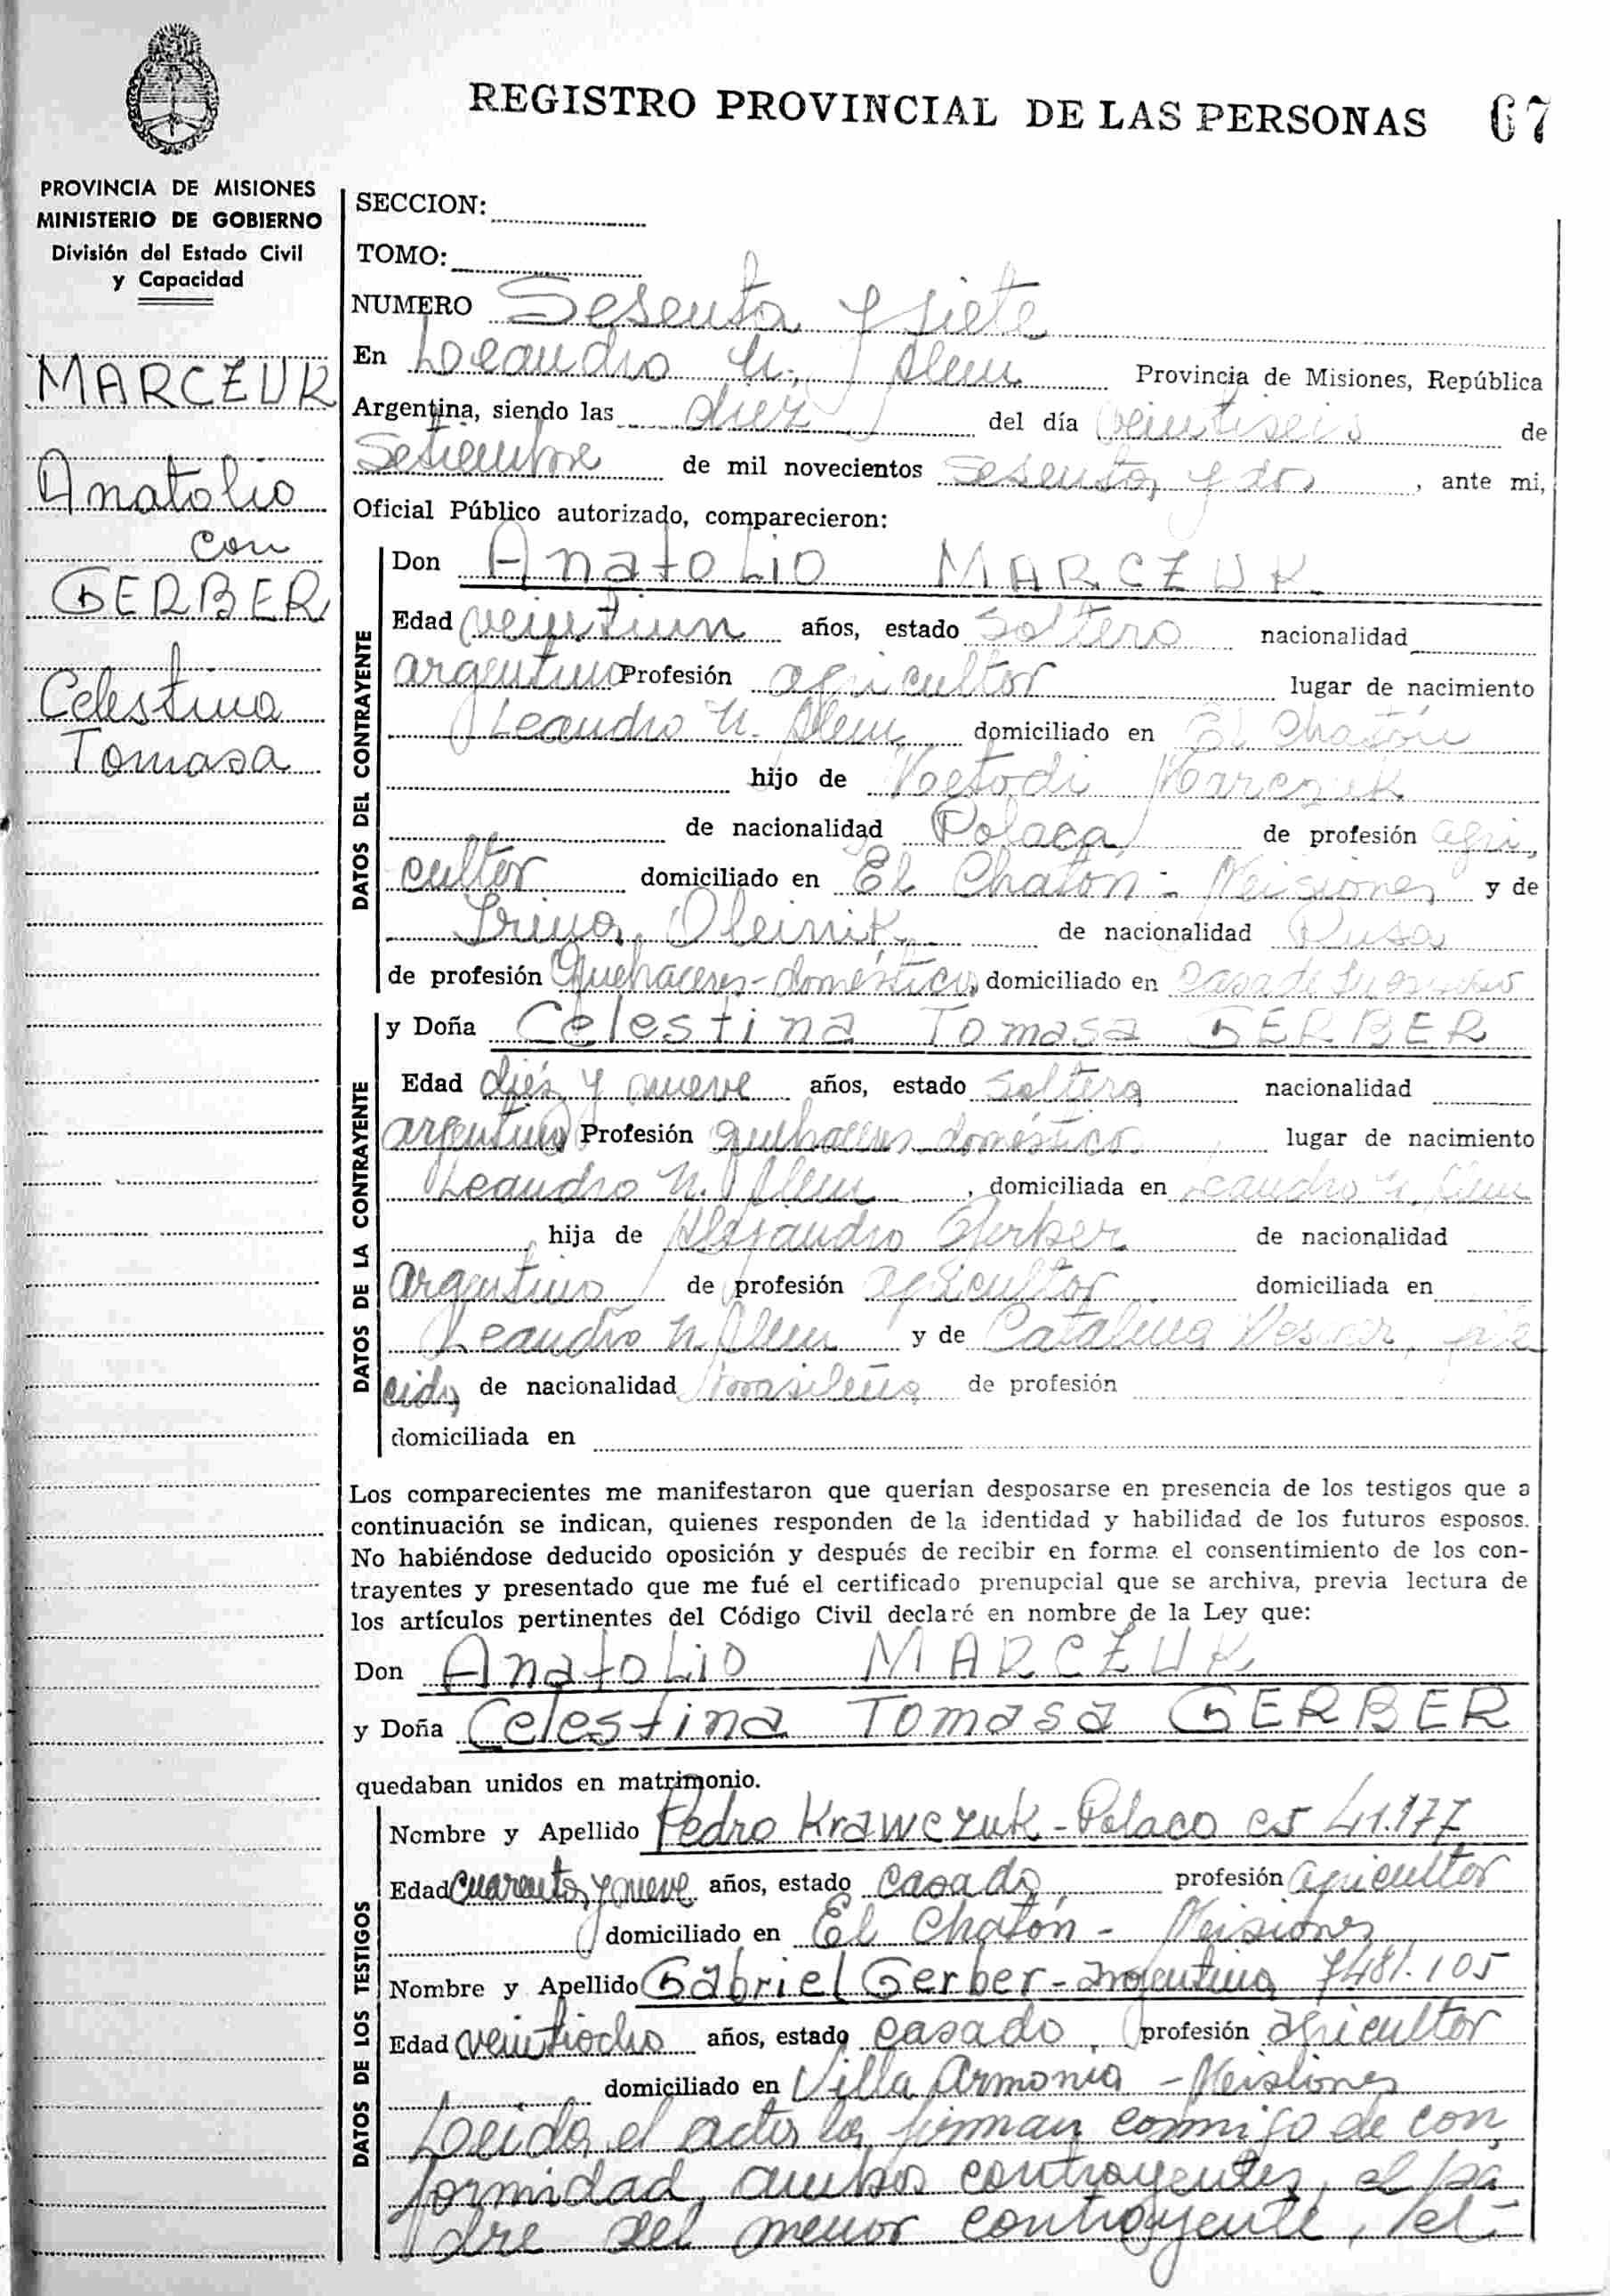 REGISTRO PROVINCIAL DE LAS PERSONAS 67
PROVINCIA DE MISIONES
MINISTERIO DE GOBIERNO
División del Estado Civil
y Capacidad
MARCZUK
Anatolio
con
GERBER
Celestina
Tomasa
SECCION:
TOMO:
NUMERO Sesenta y siete
En Leandro N. Alem Provincia de Misiones, República
Argentina, siendo las diez del día veintiseis de
Setiembre de mil novecientos sesenta y dos, ante mi,
Oficial Público autorizado, comparecieron:
DATOS DEL CONTRAYENTE
Don Anatolio MARCZUK
Edad veintiun años, estado Soltero nacionalidad
argentino Profesión agricultor lugar de nacimiento
Leandro N. Alem domiciliado en El Chatón
hijo de Metodi Marczuk
de nacionalidad Polaca de profesión agri,
cultor domiciliado en El Chatón - Misiones y de
Irina Oleinik de nacionalidad Rusa
de profesión Quehaceres-domésticos, domiciliado en Casa de su esposo
DATOS DE LA CONTRAYENTE
y Doña Celestina Tomasa GERBER
Edad diez y nueve años, estado Soltera nacionalidad
argentina Profesión quehaceres domésticos lugar de nacimiento
Leandro N. Alem, domiciliada en Leandro N. Alem
hija de Alejandro Gerber de nacionalidad
argentino de profesión agricultor domiciliada en
Leandro N. Alem y de Catalina falle
cida, de nacionalidad brasileña de profesión
domiciliada en
Los comparecientes me manifestaron que querían desposarse en presencia de los testigos que a
continuación se indican, quienes responden de la identidad y habilidad de los futuros esposos.
No habiéndose deducido oposición y después de recibir en forma el consentimiento de los con-
trayentes y presentado que me fué el certificado prenupcial que se archiva, previa lectura de
los artículos pertinentes del Código Civil declaré en nombre de la Ley que:
Don Anatolio MARCZUK
y Doña Celestina Tomasa GERBER
quedaban unidos en matrimonio.
DATOS DE LOS TESTIGOS
Nombre y Apellido Pedro Krawczuk - Polaco 41.177
Edad cuarenta y nueve años, estado casado, profesión agricultor
domiciliado en El Chatón - Misiones
Nombre y Apellido Gabriel Gerber - Argentino 7481.105
Edad veintiocho años, estado casado, profesión agricultor
domiciliado en Villa Armonia - Misiones
Leida el acta la firman conmigo de con,
formidad, ambos contrayentes, el pa
dre del menor contrayente, el-